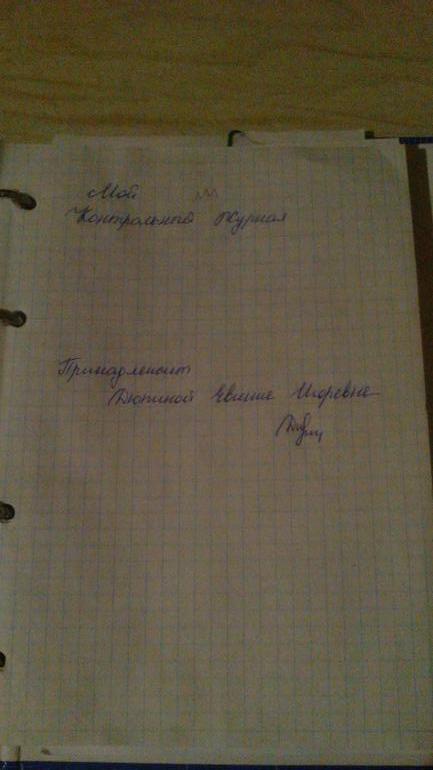 Мой
Контрольный Журнал
Принадлежит
Дюпиной Евгение Игоревне